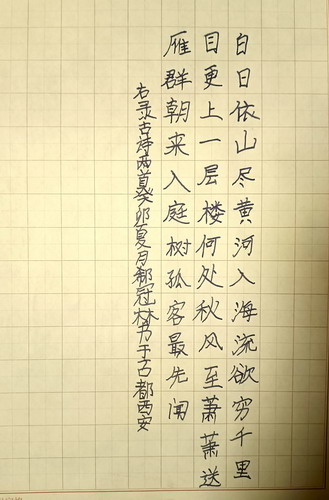 白日依山尽黄河入海流欲穷千里
目更上一层楼何处秋风至萧萧送
雁群朝来入庭树孤客最先闻
右录古诗两首癸卯夏月郝冠林书于古都西安